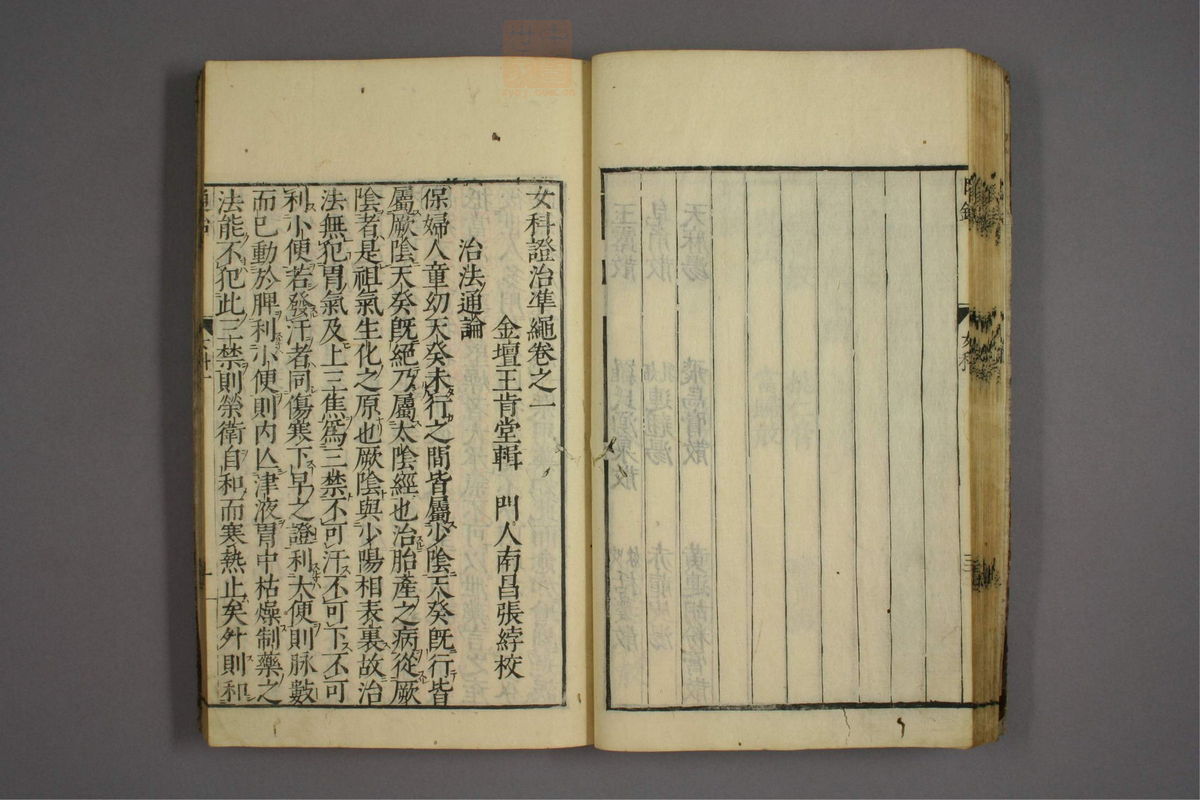 目錄
女科
三
女科證治準繩卷之一
金壇王肯堂輯 門人南昌張綍校
治法通論
保婦人童幼天癸未行之間皆屬少陰天癸旣行皆
屬厥陰天癸旣絕乃屬太陰經也治胎產之病從厥
陰者是祖氣生化之原也厥陰與少陽相表裏故治
法無犯胃氣及上三焦爲三禁不可汗不可下不可
利小便若發汗者同傷寒下早之證利大便則脉數
而已動於脾利小便則内亾津液胃中枯燥制藥之
法能不犯此三禁則榮衛自和而寒熱止矣外則和
通治